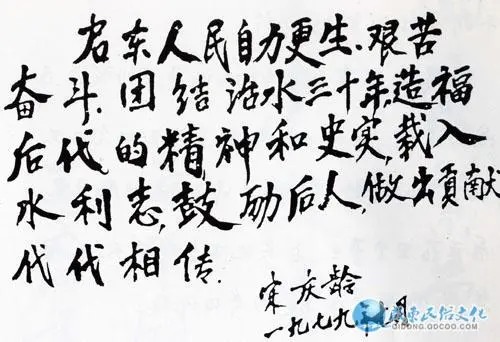 启东人民自力更生.艰苦
奋斗.团结治水三十年,造福
后代的精神和史实,载入
水利志,鼓励后人,做出貢献
代代相传.
宋庆龄
一九七九 月
启东民俗文化
QIDONG.QDCOO.COM